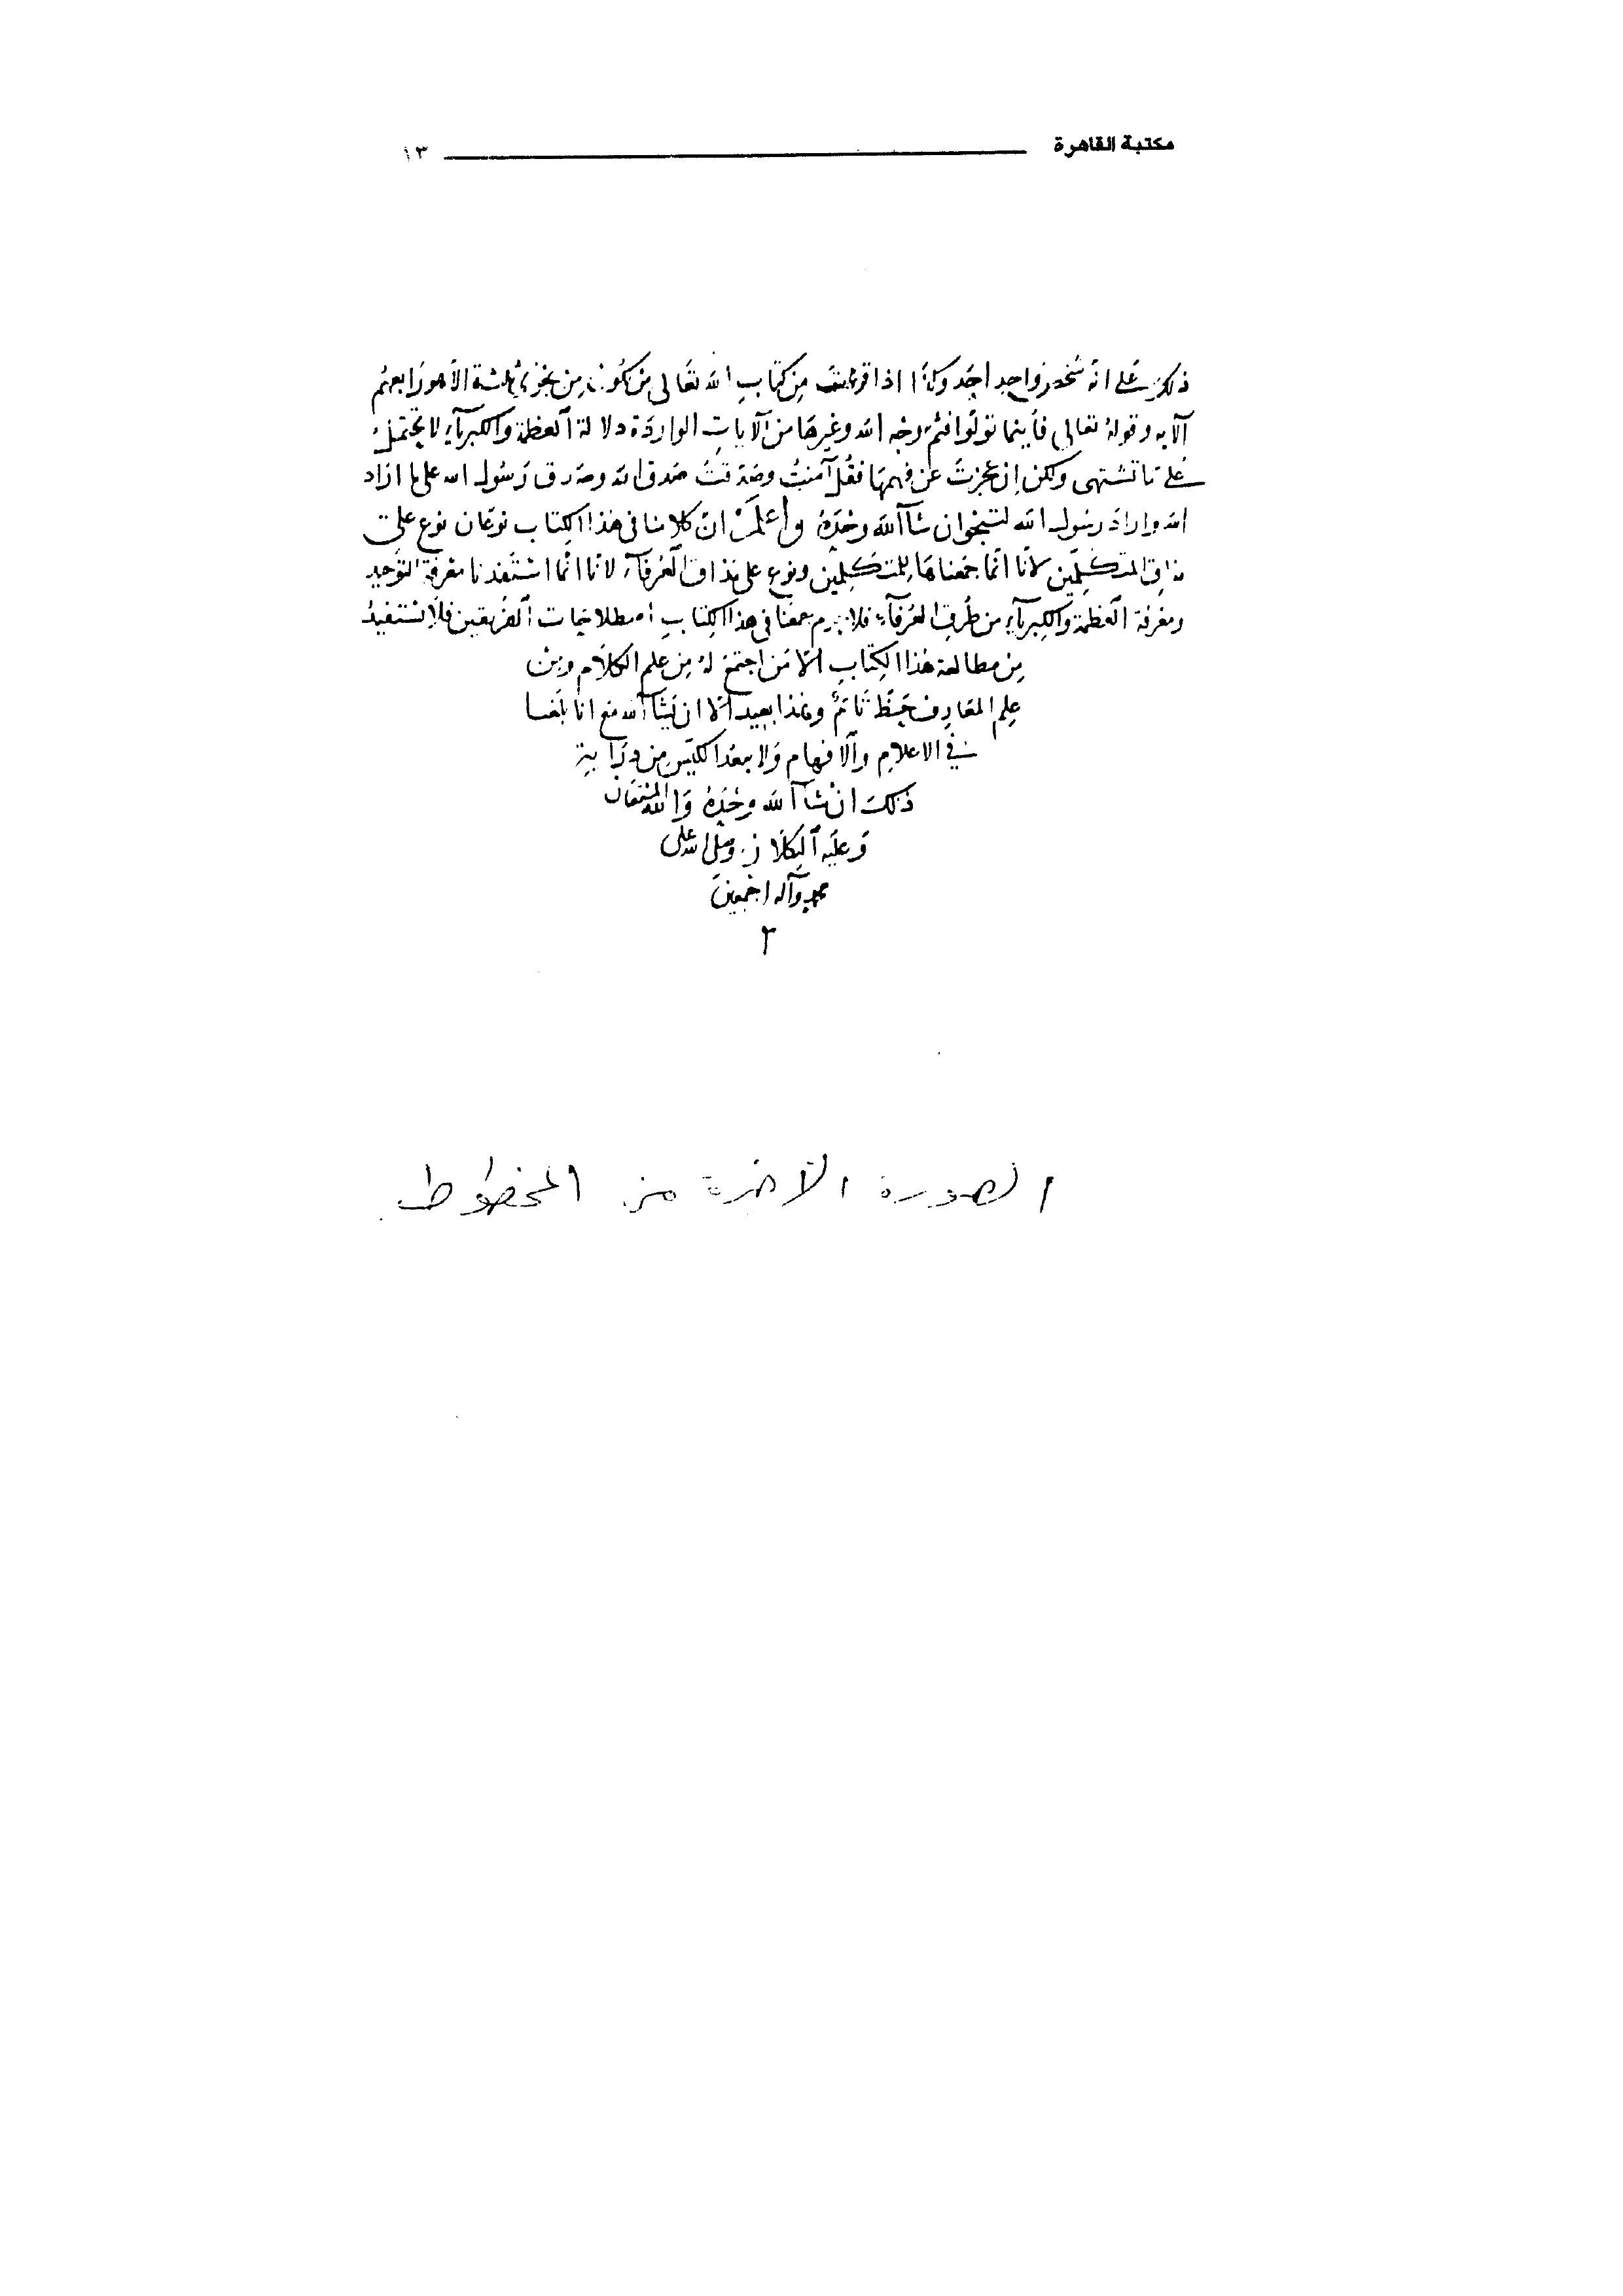 مكتبة القاهرة ١٣
ذلك على انه شخص واحد احد وكذا اذا قرعت من كتاب الله تعالى ما يكون من نجوى ثلثة الا هو رابعهم
الآية وقوله تعالى فأينما تولوا فثم وجه الله وغيرها من الآيات الواردة دلالة العظمة والكبرياء لا تحتمل
على ما تشتهى ولكن إن عجزت عن فهمها فقل آمنت وصدقت صدق الله وصدق رسول الله على ما اراد
الله واراد رسول الله لتنجو ان شاء الله وحده واعلم ان كلامنا فى هذا الكتاب نوعان نوع على
مذاق المتكلمين لأنا انما جمعناها للمتكلمين ونوع على مذاق العرفاء لأنا انما استفدنا معرفة التوحيد
ومعرفة العظمة والكبرياء من طرق العرفاء فلا جرم جمعنا فى هذا الكتاب اصطلاحات الفريقين فلا يستفيد
من مطالعة هذا الكتاب الا من اجتمع له من علم الكلام ومن
علم المعارف حظ تام وهذا بعيد الا ان يشاء الله مع انا بلغنا
في الاعلام والافهام ولا يبعد الكيس من دراية
ذلك ان شاء الله وحده والله المستعان
وعليه التكلان وصلى الله على
محمد وآله اجمعين
م
الصورة الأخيرة من المخطوط